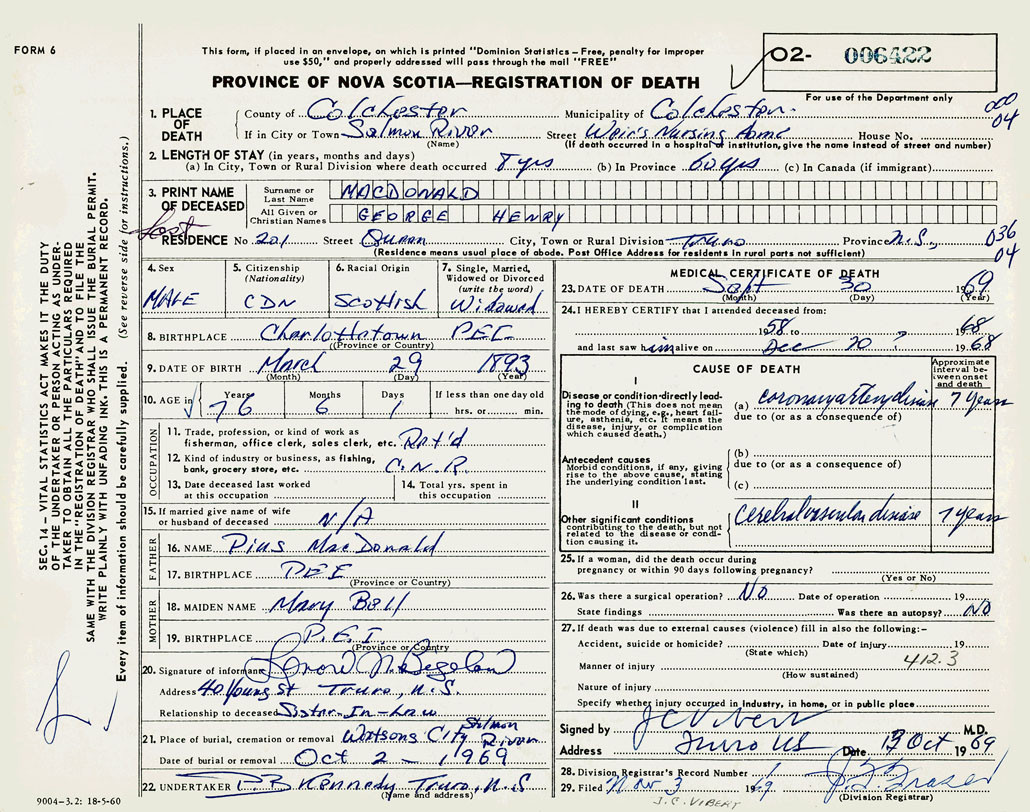 FORM 6
This form, if placed in an envelope, on which is printed "Dominion Statistics – Free, penalty for improper
use $50," and properly addressed will pass through the mail "FREE"
PROVINCE OF NOVA SCOTIA—REGISTRATION OF DEATH
02- 006422
For use of the Department only
000
04
1. PLACE OF DEATH
County of Colchester Municipality of Colchester
If in City or Town Salmon River Street Weir's Nursing Home House No.
(Name) (If death occurred in a hospital or institution, give the name instead of street and number)
2. LENGTH OF STAY (in years, months and days)
(a) In City, Town or Rural Division where death occurred 8 yrs (b) In Province 60 yrs (c) In Canada (if immigrant)
3. PRINT NAME OF DECEASED
Surname or Last Name MACDONALD
All Given or Christian Names GEORGE HENRY
Last
RESIDENCE No 201 Street Queen City, Town or Rural Division Truro Province N.S.,
(Residence means usual place of abode. Post Office Address for residents in rural parts not sufficient)
036
04
4. Sex MALE
5. Citizenship (Nationality) CDN
6. Racial Origin Scottish
7. Single, Married, Widowed or Divorced (write the word) Widowed
8. BIRTHPLACE Charlottetown PEI
(Province or Country)
9. DATE OF BIRTH March 29 1893
(Month) (Day) (Year)
10. AGE in Years 76 Months 6 Days 1 If less than one day old hrs. or min.
OCCUPATION
11. Trade, profession, or kind of work as
fisherman, office clerk, sales clerk, etc. Ret'd
12. Kind of industry or business, as fishing,
bank, grocery store, etc. C.N.R.
13. Date deceased last worked
at this occupation
14. Total yrs. spent in
this occupation
15. If married give name of wife
or husband of deceased N/A
FATHER
16. NAME Pius MacDonald
17. BIRTHPLACE PEI
(Province or Country)
MOTHER
18. MAIDEN NAME Mary Bell
19. BIRTHPLACE P.E.I.
(Province or Country)
20. Signature of informant
Address 40 Young St Truro, N.S.
Relationship to deceased Sister-In-Law
21. Place of burial, cremation or removal Watsons City Salmon River
Date of burial or removal Oct 2 - 1969
22. UNDERTAKER Kennedy Truro, N.S
(Name and address)
9004-3.2: 18-5-60
MEDICAL CERTIFICATE OF DEATH
23. DATE OF DEATH Sept 30 1969
(Month) (Day) (Year)
24. I HEREBY CERTIFY that I attended deceased from:
1958 to 1968
and last saw him alive on Dec 20 ? 1968
CAUSE OF DEATH
Approximate interval between onset and death
I
Disease or condition directly leading to death (This does not mean
the mode of dying, e.g., heart failure, asthenia, etc. It means the
disease, injury, or complication
which caused death.)
(a) coronary artery disease 7 years
due to (or as a consequence of)
Antecedent causes
Morbid conditions, if any, giving
rise to the above cause, stating
the underlying condition last.
(b)
due to (or as a consequence of)
(c)
II
Other significant conditions
contributing to the death, but not
related to the disease or condition causing it.
cerebralvascular disease 7 years
25. If a woman, did the death occur during
pregnancy or within 90 days following pregnancy?
(Yes or No)
26. Was there a surgical operation? NO Date of operation 19
State findings Was there an autopsy? NO
27. If death was due to external causes (violence) fill in also the following:–
Accident, suicide or homicide? Date of injury 19
(State which)
412.3
Manner of injury
(How sustained)
Nature of injury
Specify whether injury occurred in industry, in home, or in public place
Signed by J C Vibert M.D.
Address Truro NS Date 13 Oct 1969
28. Division Registrar's Record Number
29. Filed Nov 3 1969
(Division Registrar)
J. C. VIBERT
SEC. 14 – VITAL STATISTICS ACT MAKES IT THE DUTY
OF THE UNDERTAKER OR PERSON ACTING AS UNDER-
TAKER TO OBTAIN ALL THE PARTICULARS REQUIRED
IN THE "REGISTRATION OF DEATH" AND TO FILE THE
SAME WITH THE DIVISION REGISTRAR WHO SHALL ISSUE THE BURIAL PERMIT.
WRITE PLAINLY WITH UNFADING INK. THIS IS A PERMANENT RECORD.
Every item of information should be carefully supplied. (See reverse side for instructions.)